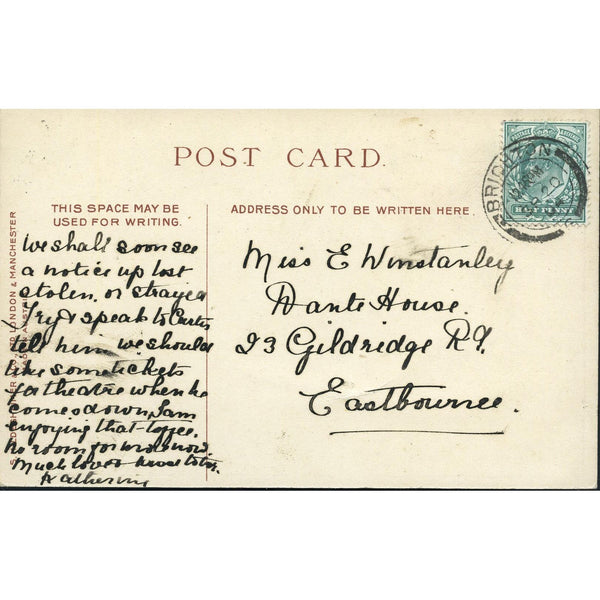 POST CARD.
THIS SPACE MAY BE
USED FOR WRITING.
ADDRESS ONLY TO BE WRITTEN HERE.
We shall soon see
a notice up lost
stolen, or strayed
Try & speak to Curtis
tell him we should
like some tickets
for theatre when he
comes down, I am
enjoying that
no room for more now.
Much love
Katherine
Miss E Winstanley
Dante House.
23 Gildridge Rd.
Eastbourne.
BRIGHTON
POSTAGE
HALFPENNY
LONDON & MANCHESTER